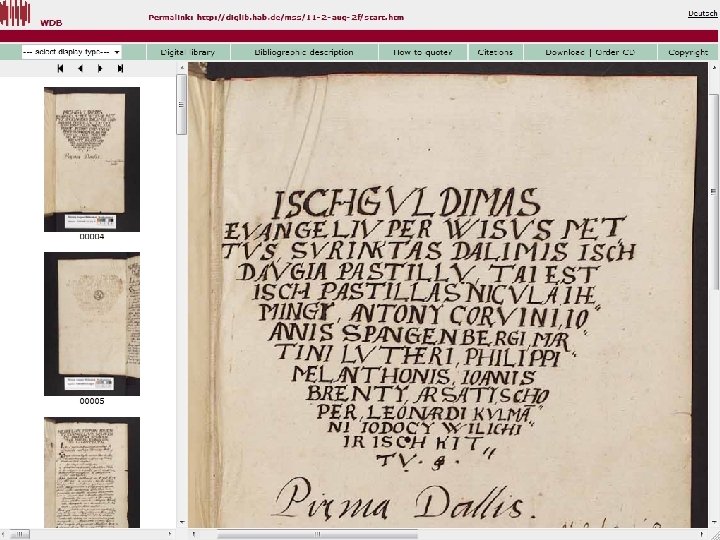 WDB
Permalink: http://diglib.hab.de/mss/11-2-aug-2f/start.htm
Deutsch
--- select display type---
Digital library
Bibliographic description
How to quote?
Citations
Download | Order CD
Copyright
00004
00005
ISCHGVLDIMAS
EVANGELIV PER WISVS MET
TVS, SVRINKTAS DALIMIS ISCH
DAVGIA PASTILLV, TAI EST
ISCH PASTILLAS NICVLAI HE
MINGY, ANTONY CORVINI, IO
ANNIS SPANGENBERGI, MAR
TINI LVTHERI, PHILIPPI
MELANTHONIS, IOANIS
BRENTY, ARSATISCHO
PER LEONARDI KVLMA
NI IODOCY WILICHI
IR ISCH KIT
TV.
Pirma Dallis.